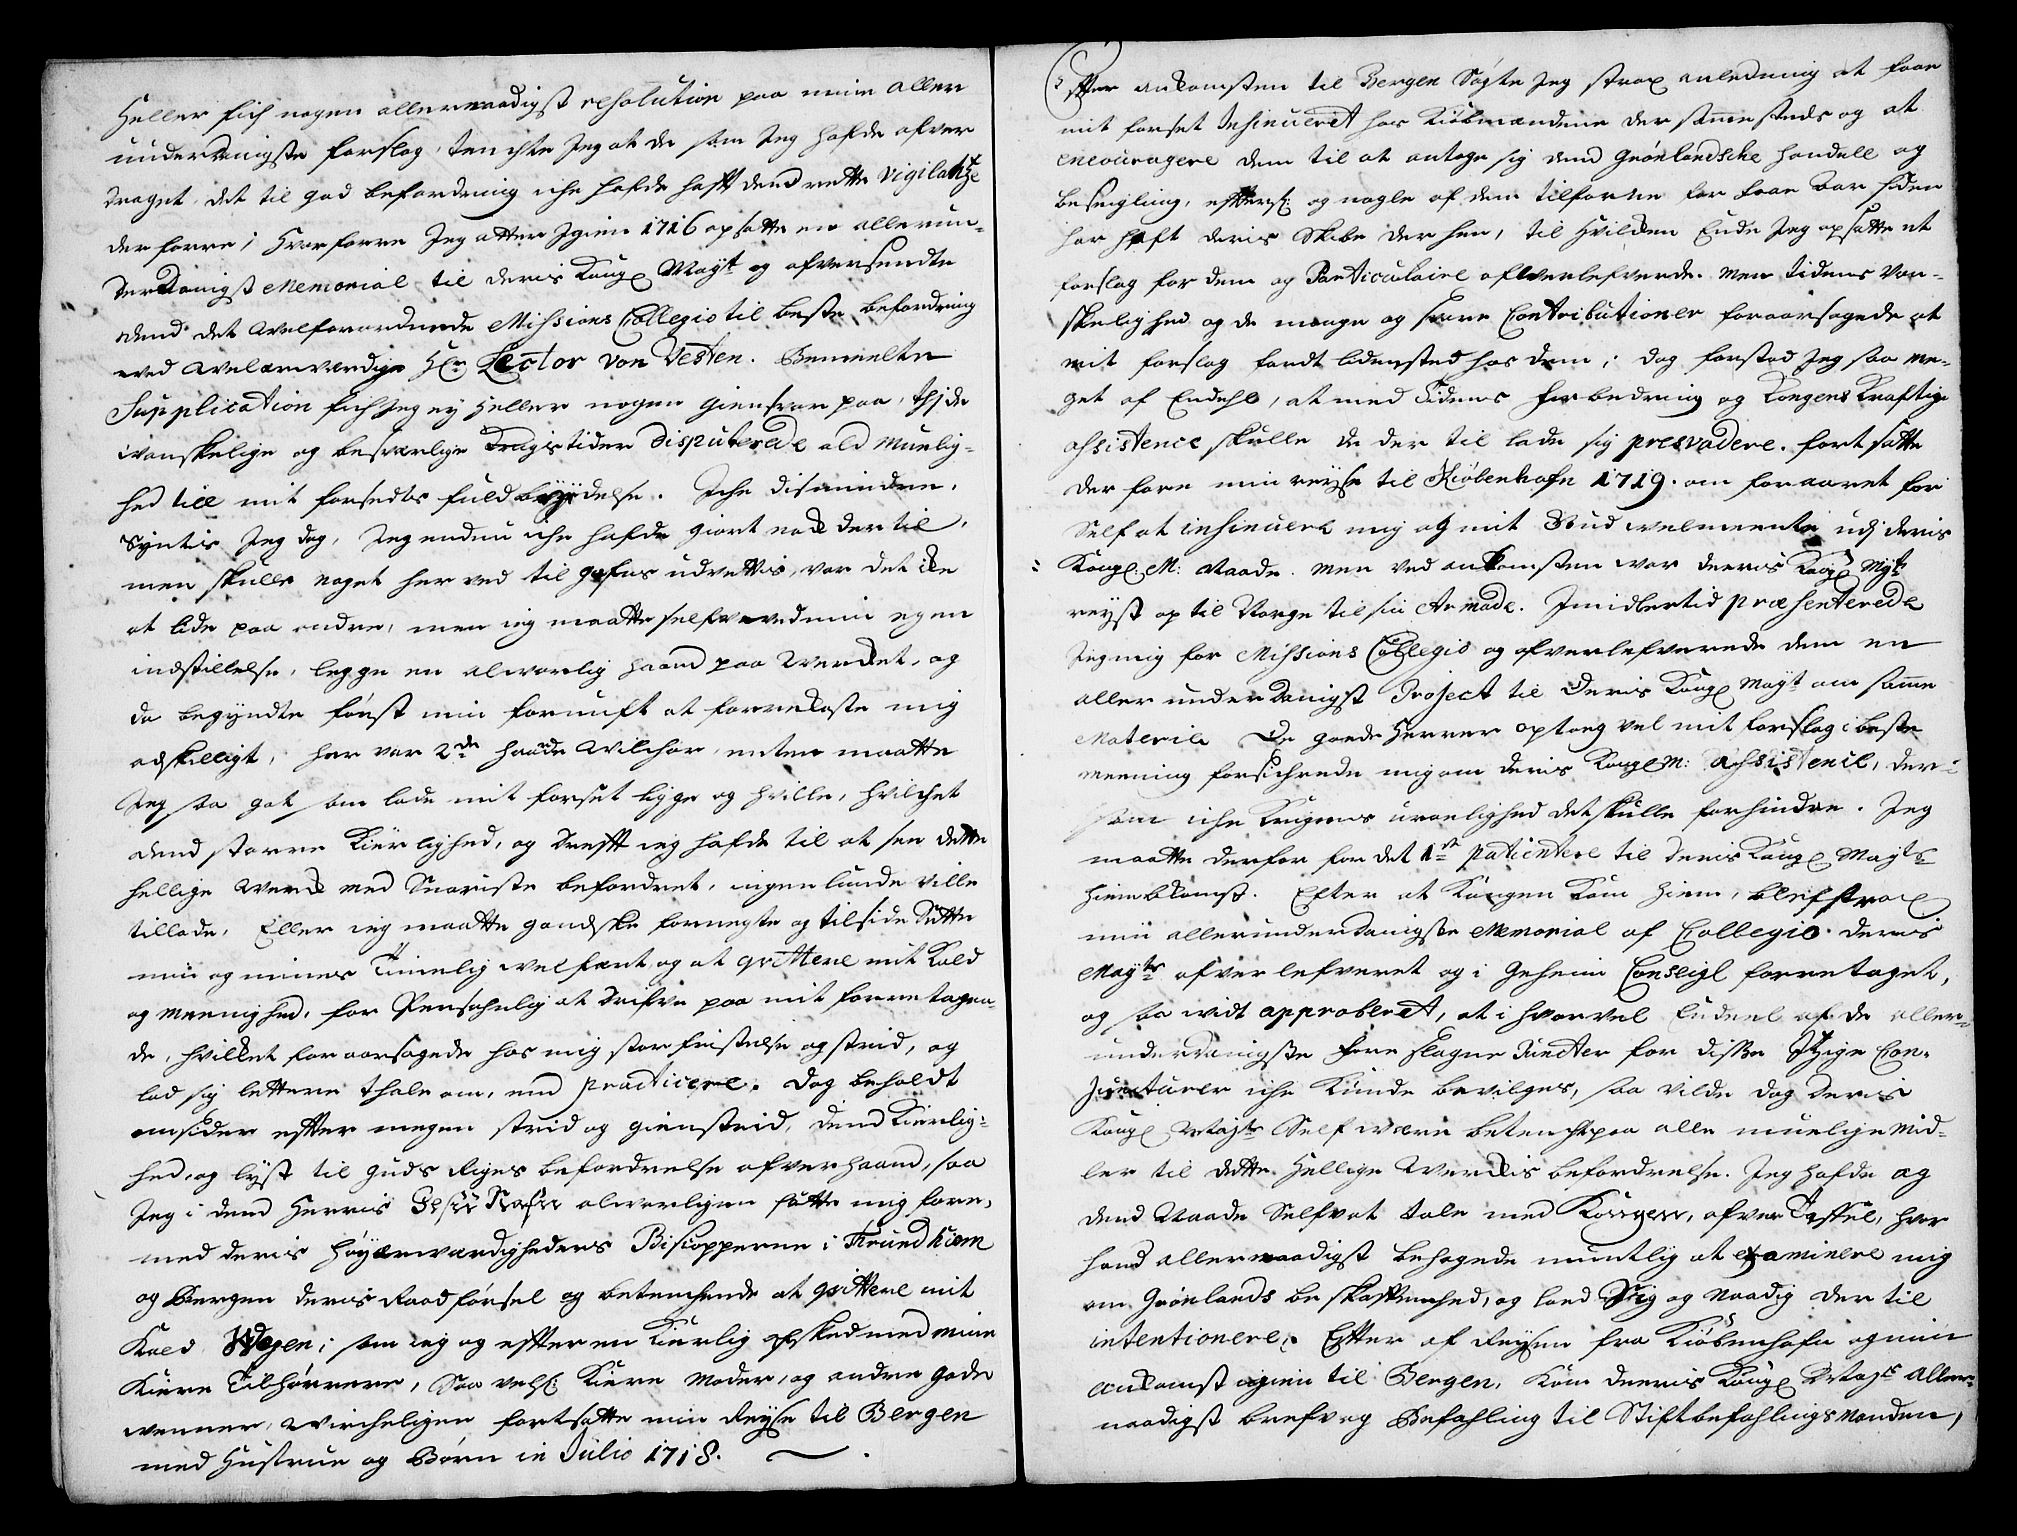 Heller fich nogen allernaadigst resolution paa mine aller
underdanigste forslag, tenchte Jeg at de som Jeg hafde ofver
draget det til god befordring iche hafde hafft dend rette vigilantze
derforre; Hvorforre Jeg atter Igien 1716 opsatte en allerun-
derdanigst Memorial til deris Kongl Mayt og ofversendte
dend det velforordnede Missions Collegio til beste befordring
ved velærværdige Hr Lector von Vesten. Bemeelte
Supplication fich Jeg ey Heller nogen giensvar paa, thi de
vanskelige og besværlige Krigstider disputerede ald muelig-
hed till mit forsedtes fuldbyrdelse. Iche dismindre,
Syntis Jeg dog, Jeg endnu iche hafde giort nock der til,
men skulle noget her ved til gafns udrettis, var det icke
at lide paa andre, men ieg maatte self ved min egen
indstillelse, legge en alvorlig haand paa Wercket, og
da begyndte først min fornuft at forrekaste mig
adskilligt, her var 2de haarde Wilchor, enten maatte
Jeg saa got som lade mit forset ligge og hville, hvilchet
dend storre Kierlighed, og Drifft ieg hafde til at see dette
hellige Werck med Snariste befordret, ingenlunde ville
tillade, Eller ieg maatte gandske fornegte og tilside Sette
min og mines Timelig velfært og at qvittere mit Kald
og Meenighed, for Persohnlig at drifve paa mit forretagen
de, hvilket foraarsagede hos mig stor fristelse og strid, og
lod sig lettere thale om, end practicere. Dog beholdt
omsider efter megen strid og gienstrid, dend Kierlig-
hed, og lyst til Guds Riges befordrelse ofverhaand, saa
Jeg i dend Herris Jesu Nafn alvorligen satte mig fore,
med deris høyærværdigheders Biscopperne i Trundhiem
og Bergen deris Raadførsel og betenchende at qvittere mit
Kald Wogen; som ieg og effter en Kierlig afsked med mine
Kiere Tilhørrere, Saa velsom Kiere Moder, og andre gode
venner, Wircheligen fortsatte min Reyse til Bergen
med Hustrue og Børn in Julio 1718.
Efter ankomsten til Bergen Søgte Jeg strax anledning at faae
mit forset Insinueret hos Kiøbmændene der sammesteds og at
encouragere dem til at antage sig dend Grønlandsche handell og
beseigling, eftersom og nogle af dem tilforne for faae Aar siden
har haft deris Skibe der hen, til Hvilcken Ende Jeg opsatte et
forslag for dem og Particulaire ofverlefverede. Men tidens Van-
skelighed og de mange og svare Contributioner foraarsagede at
mit forslag fandt liden sted hos dem; dog forstod Jeg saa me-
get af Endehl, at med Tidens forbedring og Kongens Kraftige
assistence skulle de der til lade sig persvadere. fortsatte
der fore min reyse til Kiøbenhafn 1719. om foraaret for
Self at insinuere mig og mit Bud velmeente udj deris
Kongl: M: Naade. Men ved ankomsten var deeris Kongl Myt
reyst op til Norge til sin Armade. Imidlertid præsenterede
Jeg mig for Missions Collegio og ofverlefverede dem en
aller underdanigst Project til Deris Kongl Mayt om samme
Materie De goede Herrer optoeg vel mit forslag i beste
meening forsichrede mig om deris Kongl M: Assistence, der-
som iche Krigens uroelighed det skulle forhindre. Jeg
maatte derfor for det 1ste patientere til deris Kongl Mayts
hiembkomst. Efter at Kongen kom hiem, blef strax
min allerunderdanigste Memorial af Collegio deris
Mayts ofverlefveret og i Geheim Conseigl forretaget,
og saa vidt approberet, at i hvorvel Endeel af de aller-
underdanigste fore slagne Puncter for disse Itzige Con-
juncturer iche kunde bevilges, saa vilde dog deris
Kongl Mayts Self være betencht paa alle muelige Mid-
ler til dette Hellige Werckis befordrelse. Jeg hafde og
dend Naade Self at tale med Kongen, ofver Taffel, hvor
hand allernaadigst behagede mundtlig at examinere mig
om Grønlands beskaffenhed, og loed Sig og Naadig der til
intentionere. Efter af Reysen fra Kiøbenhafn og min
ankomst igien til Bergen, Kom deeris Kongl Mayts Aller-
naadigst bref og Befahling til Stiftbefahlingsmanden,